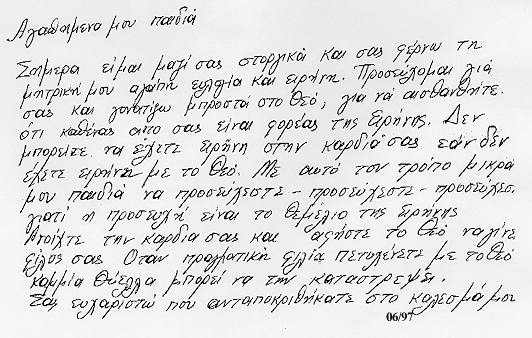 Αγαπημένα μου παιδιά
Σήμερα είμαι μαζί σας στοργικά και σας φέρνω τη
μητρική μου αγάπη ευλογία και ειρήνη. Προσεύχομαι γιά
σας και γονατίζω μπροστά στο Θεό, για νά αισθανθήτε.
ότι καθένας απο σας είναι φορέας της Ειρήνης. Δεν
μπορείτε να έχετε Ειρήνη στην καρδιά σας εάν δέν
έχετε ειρήνη με το Θεό. Με αυτό τον τρόπο μικρά
μου παιδιά να προσεύχεστε - προσεύχεστε - προσεύχεσ.
γιατί η προσευχή είναι το θεμέλιο της Ειρήνης
Ανοίχτε την καρδια σας και αφήστε το Θεό να γίνε
φίλος σας Οταν πραγματική φιλία πετυχένετε με το Θεό
καμμία Θύελλα μπορεί να την καταστρέψει.
Σας ευχαριστώ που ανταποκριθήκατε στο κάλεσμά μου
06/97